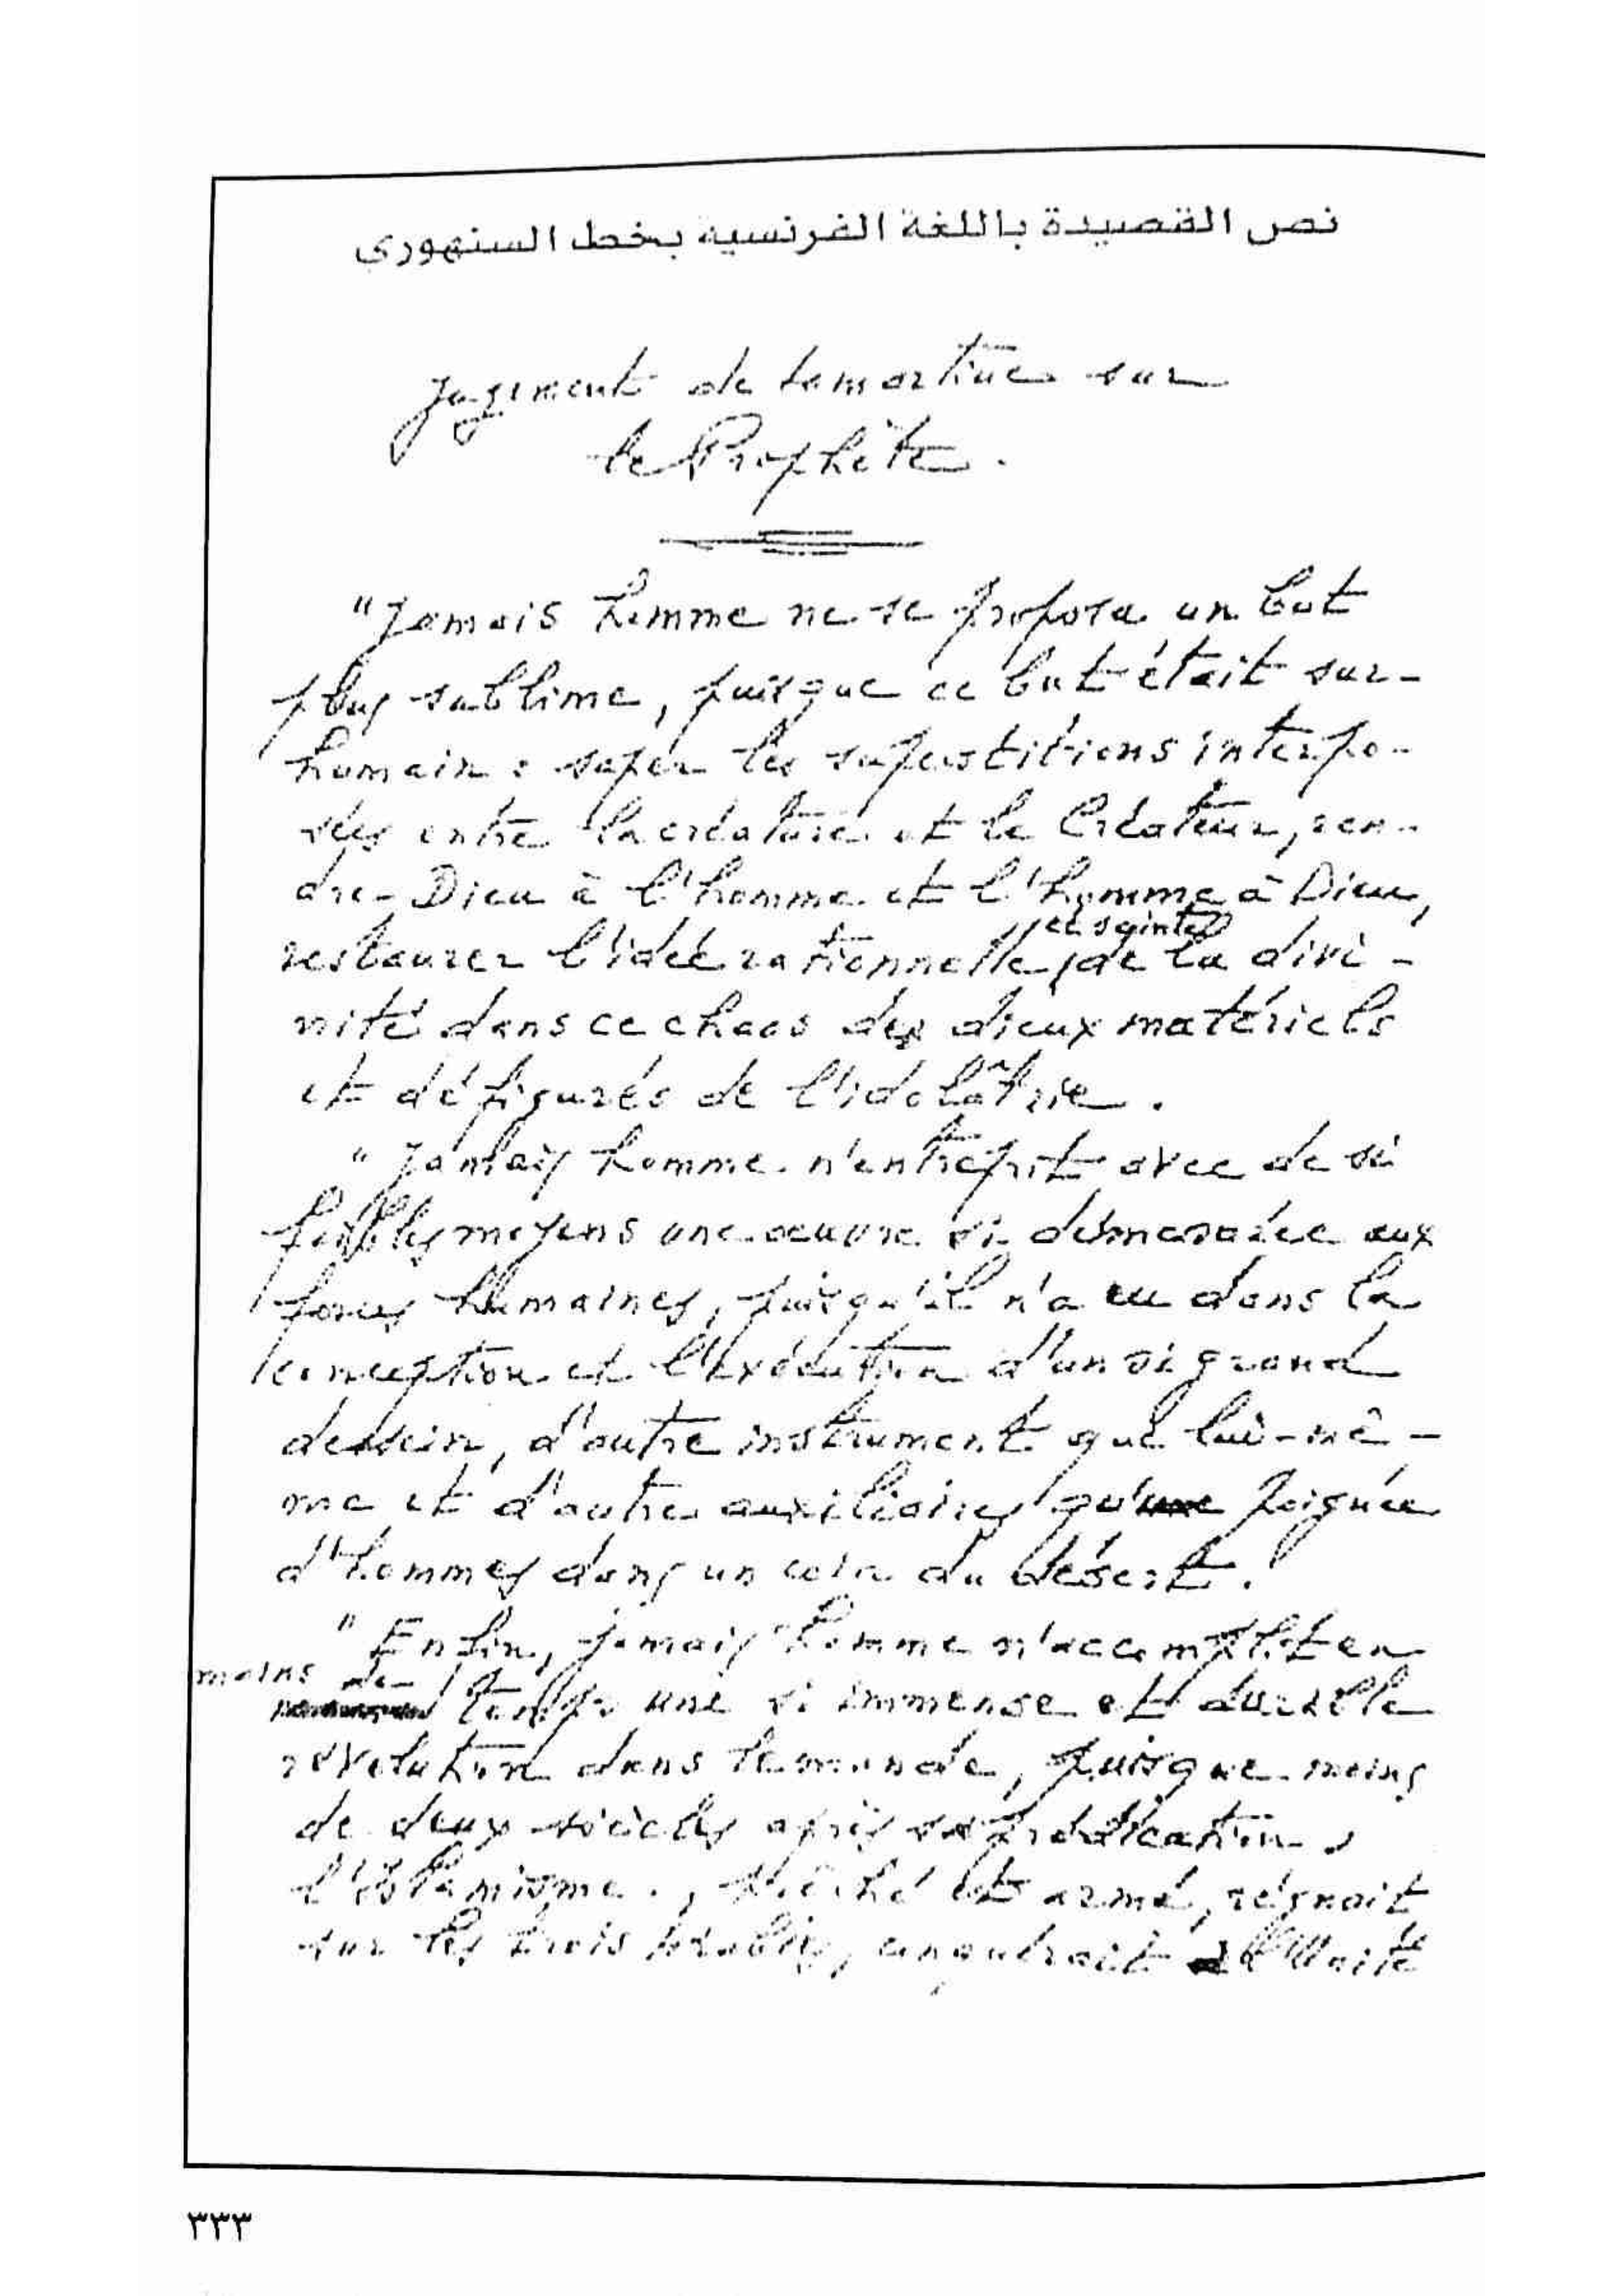 نص القصيدة باللغة الفرنسية بخط السنهوري
Jugement de Lamartine sur
le Prophète.
"Jamais homme ne se proposa un but
plus sublime, puisque ce but était sur-
humain : saper les superstitions interpo-
sées entre la créature et le Créateur, ren-
dre Dieu à l'homme et l'homme à Dieu,
restaurer l'idée rationnelle et sainte de la divi-
nité dans ce chaos des dieux matériels
et défigurés de l'idolâtrie.
"Jamais homme n'entreprit avec de si
faibles moyens une œuvre si démesurée aux
forces humaines, puisqu'il n'a eu dans la
conception et l'exécution d'un si grand
dessein, d'autre instrument que lui-mê-
me et d'autres auxiliaires qu'une poignée
d'hommes dans un coin du désert.
"Enfin, jamais homme n'accomplit en
moins de temps une si immense et durable
révolution dans le monde, puisque moins
de deux siècles après sa prédication,
l'Islamisme, prêché et armé, régnait
sur les trois Arabies, conquérait à l'Unité
٣٣٣